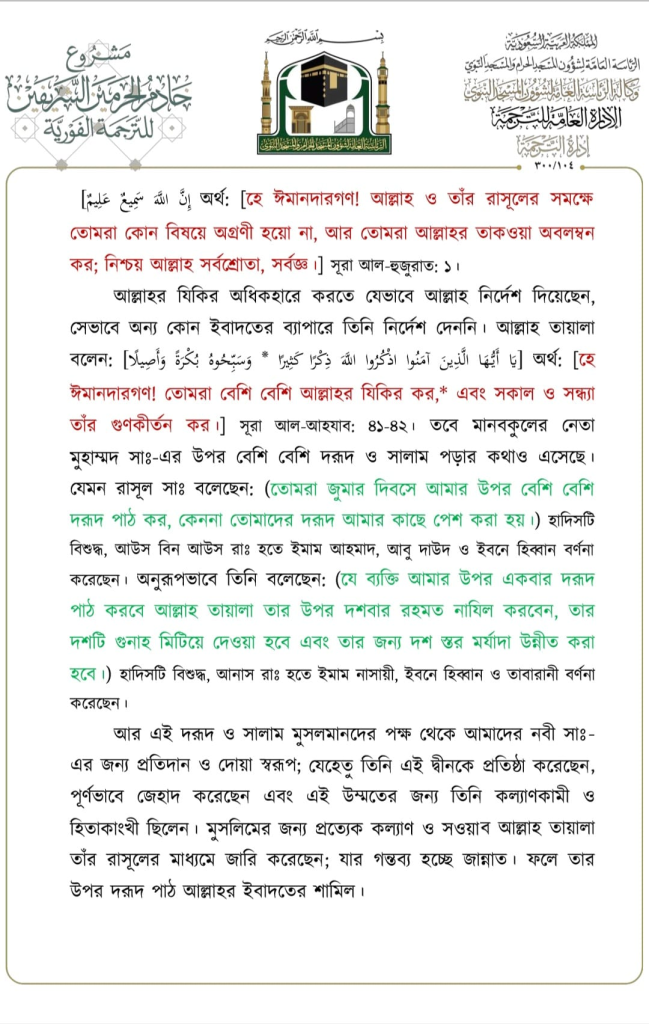 مشروع
خادم الحرمين الشريفين
للترجمة الفورية
بسم الله الرحمن الرحيم
الرئاسة العامة لشؤون المسجد الحرام والمسجد النبوي
المملكة العربية السعودية
الرئاسة العامة لشؤون المسجد الحرام والمسجد النبوي
وكالة الرئاسة العامة لشؤون المسجد النبوي
الإدارة العامة للترجمة
إدارة الترجمة
٣٠٠/١٠٤
[إِنَّ اللَّهَ سَمِيعٌ عَلِيمٌ অর্থ: [হে ঈমানদারগণ! আল্লাহ ও তাঁর রাসূলের সমক্ষে
তোমরা কোন বিষয়ে অগ্রণী হয়ো না, আর তোমরা আল্লাহর তাকওয়া অবলম্বন
কর; নিশ্চয় আল্লাহ সর্বশ্রোতা, সর্বজ্ঞ।] সূরা আল-হুজুরাত: ১।
আল্লাহর যিকির অধিকহারে করতে যেভাবে আল্লাহ নির্দেশ দিয়েছেন,
সেভাবে অন্য কোন ইবাদতের ব্যাপারে তিনি নির্দেশ দেননি। আল্লাহ তায়ালা
বলেন: [يَا أَيُّهَا الَّذِينَ آمَنُوا اذْكُرُوا اللَّهَ ذِكْرًا كَثِيرًا * وَسَبِّحُوهُ بُكْرَةً وَأَصِيلًا] অর্থ: [হে
ঈমানদারগণ! তোমরা বেশি বেশি আল্লাহর যিকির কর,* এবং সকাল ও সন্ধ্যা
তাঁর গুণকীর্তন কর।] সূরা আল-আহযাব: ৪১-৪২। তবে মানবকুলের নেতা
মুহাম্মদ সাঃ-এর উপর বেশি বেশি দরূদ ও সালাম পড়ার কথাও এসেছে।
যেমন রাসূল সাঃ বলেছেন: (তোমরা জুমার দিবসে আমার উপর বেশি বেশি
দরূদ পাঠ কর, কেননা তোমাদের দরূদ আমার কাছে পেশ করা হয়।) হাদিসটি
বিশুদ্ধ, আউস বিন আউস রাঃ হতে ইমাম আহমাদ, আবু দাউদ ও ইবনে হিব্বান বর্ণনা
করেছেন। অনুরূপভাবে তিনি বলেছেন: (যে ব্যক্তি আমার উপর একবার দরূদ
পাঠ করবে আল্লাহ তায়ালা তার উপর দশবার রহমত নাযিল করবেন, তার
দশটি গুনাহ মিটিয়ে দেওয়া হবে এবং তার জন্য দশ স্তর মর্যাদা উন্নীত করা
হবে।) হাদিসটি বিশুদ্ধ, আনাস রাঃ হতে ইমাম নাসায়ী, ইবনে হিব্বান ও তাবারানী বর্ণনা
করেছেন।
আর এই দরূদ ও সালাম মুসলমানদের পক্ষ থেকে আমাদের নবী সাঃ-
এর জন্য প্রতিদান ও দোয়া স্বরূপ; যেহেতু তিনি এই দ্বীনকে প্রতিষ্ঠা করেছেন,
পূর্ণভাবে জেহাদ করেছেন এবং এই উম্মতের জন্য তিনি কল্যাণকামী ও
হিতাকাংখী ছিলেন। মুসলিমের জন্য প্রত্যেক কল্যাণ ও সওয়াব আল্লাহ তায়ালা
তাঁর রাসূলের মাধ্যমে জারি করেছেন; যার গন্তব্য হচ্ছে জান্নাত। ফলে তার
উপর দরূদ পাঠ আল্লাহর ইবাদতের শামিল।